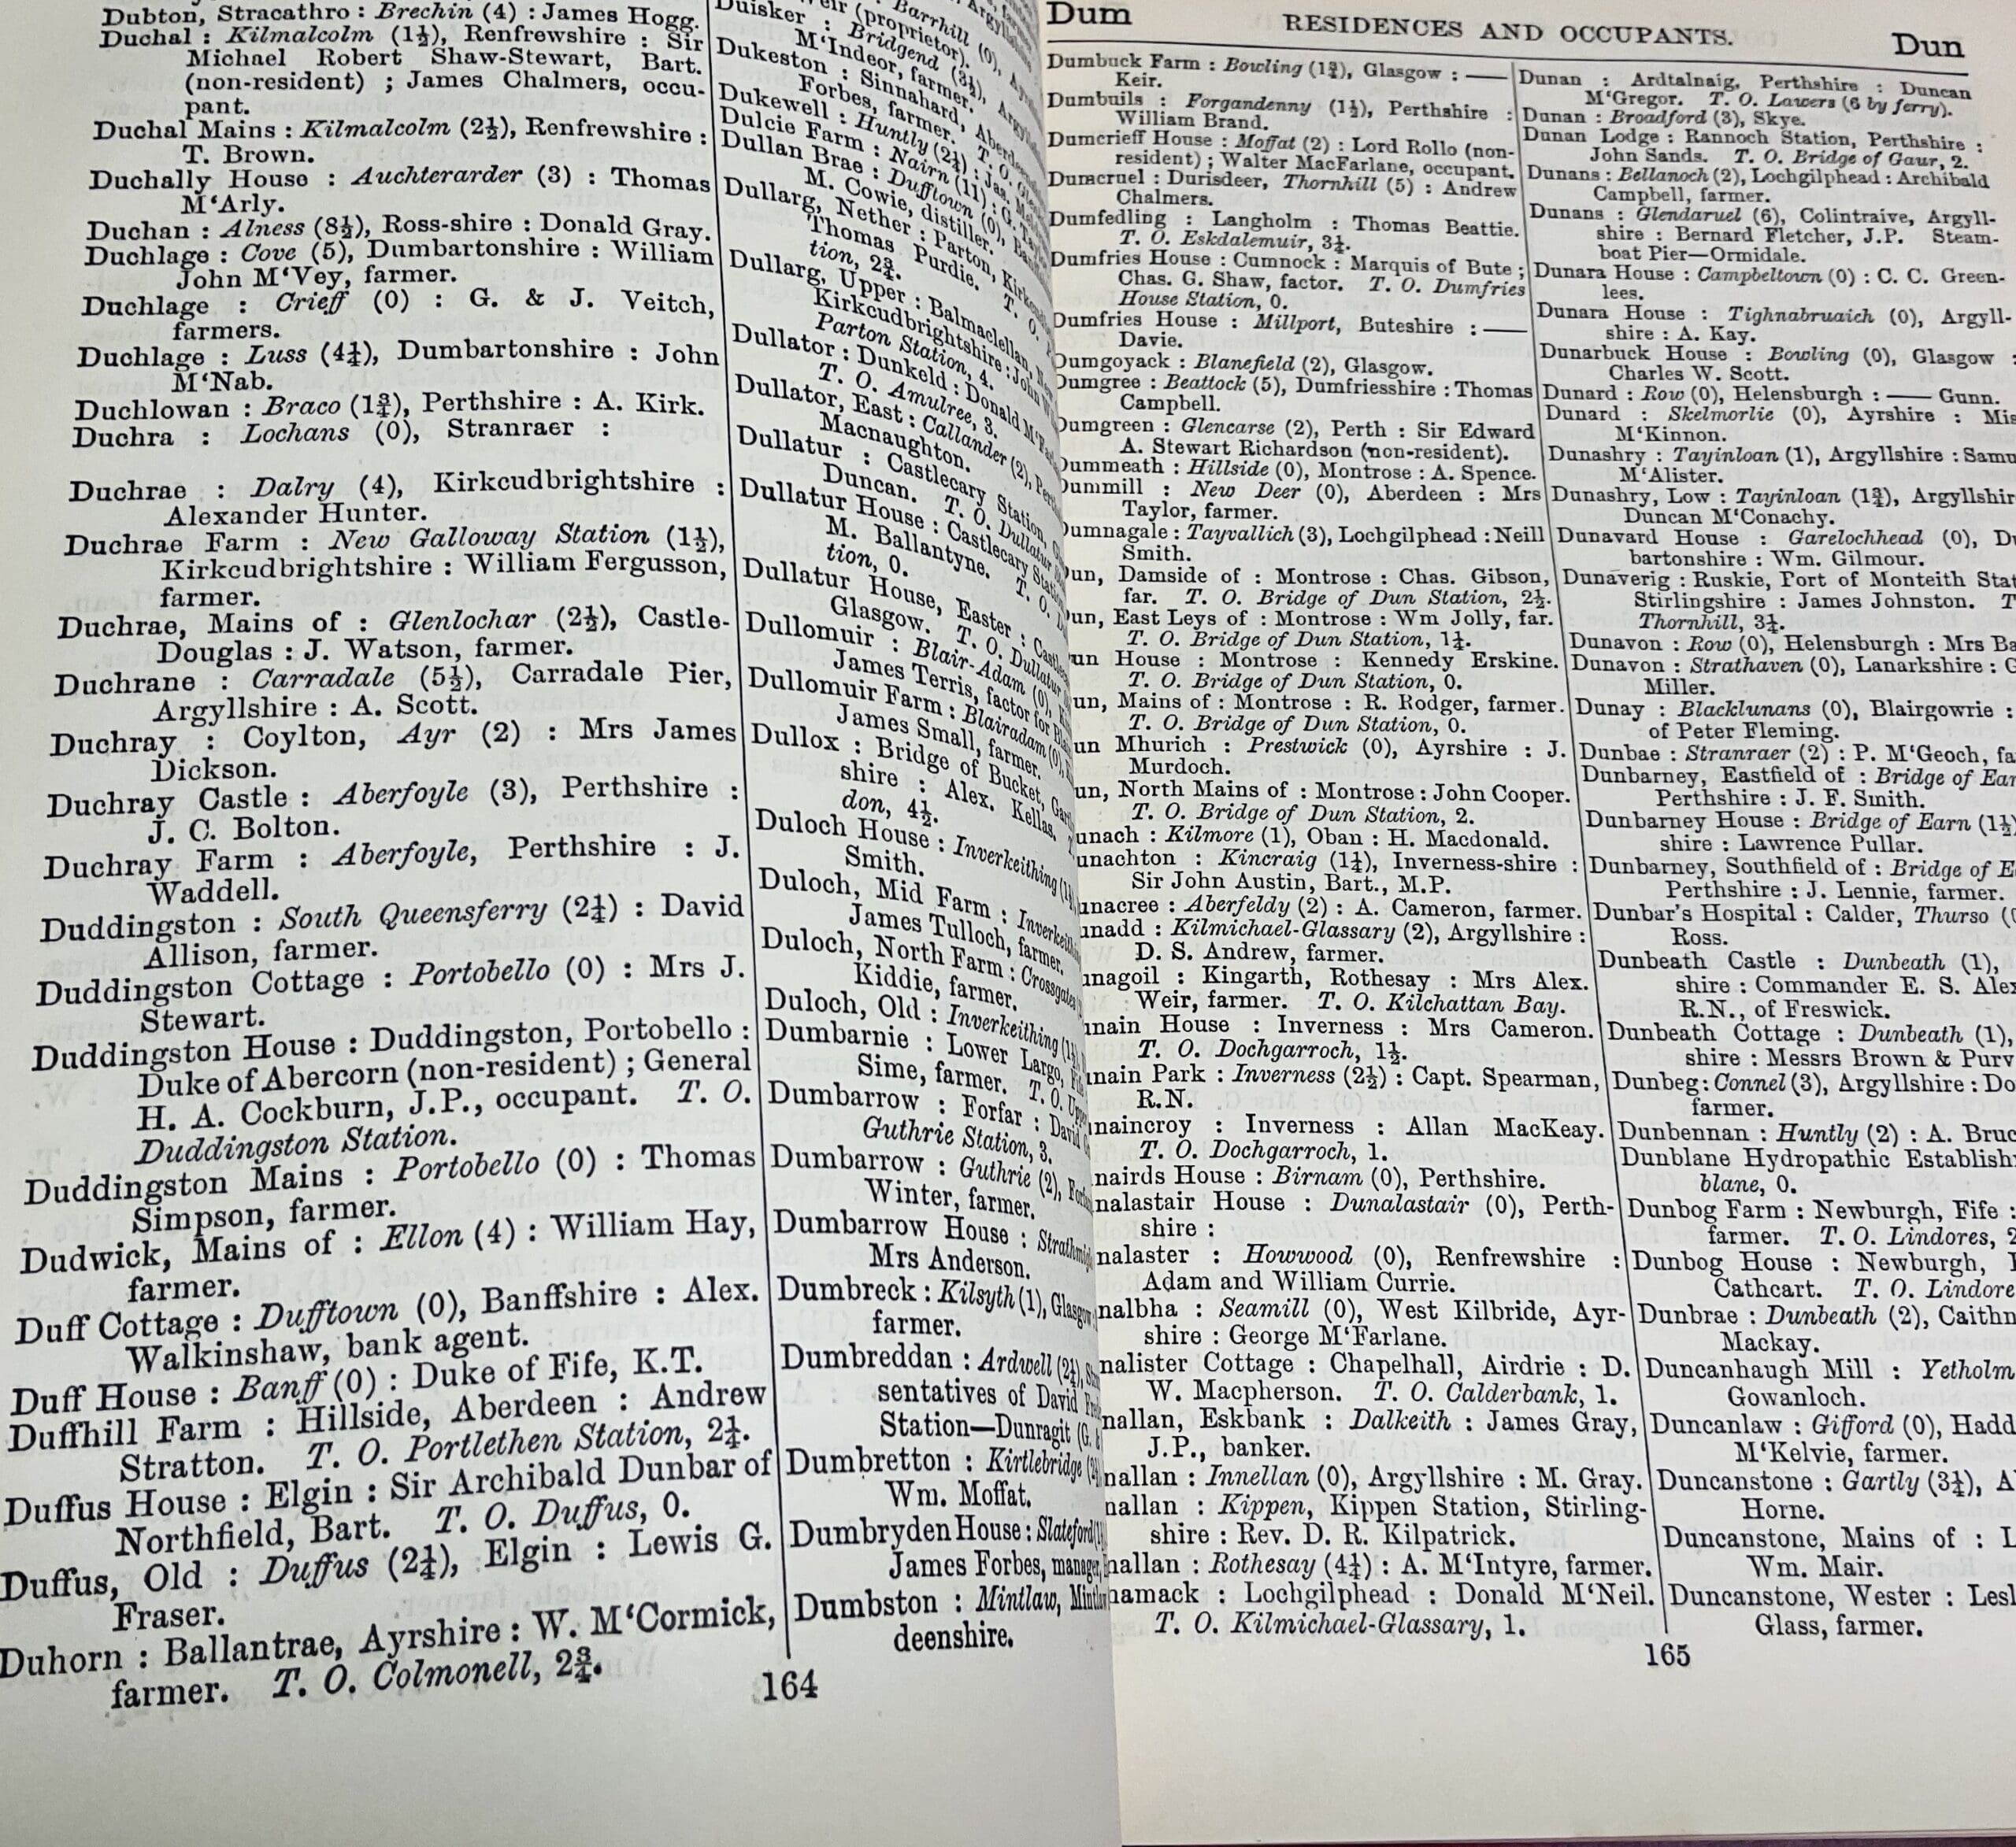 Dubton, Stracathro : Brechin (4) : James Hogg.
Duchal : Kilmalcolm (1½), Renfrewshire : Sir
Michael Robert Shaw-Stewart, Bart.
(non-resident) ; James Chalmers, occu-
pant.
Duchal Mains : Kilmalcolm (2½), Renfrewshire :
T. Brown.
Duchally House : Auchterarder (3) : Thomas
M‘Arly.
Duchan : Alness (8½), Ross-shire : Donald Gray.
Duchlage : Cove (5), Dumbartonshire : William
John M‘Vey, farmer.
Duchlage : Crieff (0) : G. & J. Veitch,
farmers.
Duchlage : Luss (4¼), Dumbartonshire : John
M‘Nab.
Duchlowan : Braco (1¾), Perthshire : A. Kirk.
Duchra : Lochans (0), Stranraer :
Duchrae : Dalry (4), Kirkcudbrightshire :
Alexander Hunter.
Duchrae Farm : New Galloway Station (1½),
Kirkcudbrightshire : William Fergusson,
farmer.
Duchrae, Mains of : Glenlochar (2½), Castle-
Douglas : J. Watson, farmer.
Duchrane : Carradale (5½), Carradale Pier,
Argyllshire : A. Scott.
Duchray : Coylton, Ayr (2) : Mrs James
Dickson.
Duchray Castle : Aberfoyle (3), Perthshire :
J. C. Bolton.
Duchray Farm : Aberfoyle, Perthshire : J.
Waddell.
Duddingston : South Queensferry (2¼) : David
Allison, farmer.
Duddingston Cottage : Portobello (0) : Mrs J.
Stewart.
Duddingston House : Duddingston, Portobello :
Duke of Abercorn (non-resident) ; General
H. A. Cockburn, J.P., occupant. T. O.
Duddingston Station.
Duddingston Mains : Portobello (0) : Thomas
Simpson, farmer.
Dudwick, Mains of : Ellon (4) : William Hay,
farmer.
Duff Cottage : Dufftown (0), Banffshire : Alex.
Walkinshaw, bank agent.
Duff House : Banff (0) : Duke of Fife, K.T.
Duffhill Farm : Hillside, Aberdeen : Andrew
Stratton. T. O. Portlethen Station, 2¼.
Duffus House : Elgin : Sir Archibald Dunbar of
Northfield, Bart. T. O. Duffus, 0.
Duffus, Old : Duffus (2¼), Elgin : Lewis G.
Fraser.
Duhorn : Ballantrae, Ayrshire : W. M‘Cormick,
farmer. T. O. Colmonell, 2¾.
(proprietor).
Duisker : Bridgend (3½),
M‘Indeor, farmer.
Dukeston : Sinnahard,
Forbes, farmer. T. O.
Dukewell : Huntly (2¼) : Jas.
Dulcie Farm : Nairn (11) : G.
Dullan Brae : Dufftown (0),
M. Cowie, distiller.
Dullarg, Nether : Parton,
Thomas Purdie. T. O.
tion, 2¾.
Dullarg, Upper : Balmaclellan,
Kirkcudbrightshire : John
Parton Station, 4.
Dullator : Dunkeld : Donald
T. O. Amulree, 3.
Dullator, East : Callander (2),
Macnaughton.
Dullatur : Castlecary Station,
Duncan. T. O. Dullatur
Dullatur House : Castlecary Station,
M. Ballantyne. T. O.
tion, 0.
Dullatur House, Easter :
Glasgow. T. O. Dullatur
Dullomuir : Blair-Adam (0),
James Terris, factor for
Dullomuir Farm : Blairadam (0),
James Small, farmer.
Dullox : Bridge of Bucket,
shire : Alex. Kellas.
don, 4½.
Duloch House : Inverkeithing
Smith.
Duloch, Mid Farm :
James Tulloch, farmer.
Duloch, North Farm : Crossgates
Kiddie, farmer.
Duloch, Old : Inverkeithing
Dumbarnie : Lower Largo,
Sime, farmer. T. O.
Dumbarrow : Forfar : David
Guthrie Station, 3.
Dumbarrow : Guthrie (2),
Winter, farmer.
Dumbarrow House :
Mrs Anderson.
Dumbreck : Kilsyth (1), Glasgow
farmer.
Dumbreddan : Ardwell (2¼),
sentatives of David
Station—Dunragit
Dumbretton : Kirtlebridge
Wm. Moffat.
Dumbryden House : Slateford
James Forbes, manager,
Dumbston : Mintlaw,
deenshire.
164
Dum
RESIDENCES AND OCCUPANTS.
Dun
Dumbuck Farm : Bowling (1¾), Glasgow : ——
Keir.
Dumbuils : Forgandenny (1½), Perthshire :
William Brand.
Dumcrieff House : Moffat (2) : Lord Rollo (non-
resident) ; Walter MacFarlane, occupant.
Dumcruel : Durisdeer, Thornhill (5) : Andrew
Chalmers.
Dumfedling : Langholm : Thomas Beattie.
T. O. Eskdalemuir, 3¼.
Dumfries House : Cumnock : Marquis of Bute ;
Chas. G. Shaw, factor. T. O. Dumfries
House Station, 0.
Dumfries House : Millport, Buteshire : ——
Davie.
Dumgoyack : Blanefield (2), Glasgow.
Dumgree : Beattock (5), Dumfriesshire : Thomas
Campbell.
Dumgreen : Glencarse (2), Perth : Sir Edward
A. Stewart Richardson (non-resident).
Dummeath : Hillside (0), Montrose : A. Spence.
Dummill : New Deer (0), Aberdeen : Mrs
Taylor, farmer.
Dumnagale : Tayvallich (3), Lochgilphead : Neill
Smith.
un, Damside of : Montrose : Chas. Gibson,
far. T. O. Bridge of Dun Station, 2½.
un, East Leys of : Montrose : Wm Jolly, far.
T. O. Bridge of Dun Station, 1¼.
un House : Montrose : Kennedy Erskine.
T. O. Bridge of Dun Station, 0.
un, Mains of : Montrose : R. Rodger, farmer.
T. O. Bridge of Dun Station, 0.
un Mhurich : Prestwick (0), Ayrshire : J.
Murdoch.
un, North Mains of : Montrose : John Cooper.
T. O. Bridge of Dun Station, 2.
unach : Kilmore (1), Oban : H. Macdonald.
unachton : Kincraig (1¼), Inverness-shire :
Sir John Austin, Bart., M.P.
unacree : Aberfeldy (2) : A. Cameron, farmer.
unadd : Kilmichael-Glassary (2), Argyllshire :
D. S. Andrew, farmer.
unagoil : Kingarth, Rothesay : Mrs Alex.
Weir, farmer. T. O. Kilchattan Bay.
unain House : Inverness : Mrs Cameron.
T. O. Dochgarroch, 1½.
unain Park : Inverness (2½) : Capt. Spearman,
R.N.
naincroy : Inverness : Allan MacKeay.
T. O. Dochgarroch, 1.
nairds House : Birnam (0), Perthshire.
nalastair House : Dunalastair (0), Perth-
shire :
nalaster : Howwood (0), Renfrewshire :
Adam and William Currie.
nalbha : Seamill (0), West Kilbride, Ayr-
shire : George M‘Farlane.
nalister Cottage : Chapelhall, Airdrie : D.
W. Macpherson. T. O. Calderbank, 1.
nallan, Eskbank : Dalkeith : James Gray,
J.P., banker.
nallan : Innellan (0), Argyllshire : M. Gray.
nallan : Kippen, Kippen Station, Stirling-
shire : Rev. D. R. Kilpatrick.
nallan : Rothesay (4¼) : A. M‘Intyre, farmer.
namack : Lochgilphead : Donald M‘Neil.
T. O. Kilmichael-Glassary, 1.
Dunan : Ardtalnaig, Perthshire : Duncan
M‘Gregor. T. O. Lawers (6 by ferry).
Dunan : Broadford (3), Skye.
Dunan Lodge : Rannoch Station, Perthshire :
John Sands. T. O. Bridge of Gaur, 2.
Dunans : Bellanoch (2), Lochgilphead : Archibald
Campbell, farmer.
Dunans : Glendaruel (6), Colintraive, Argyll-
shire : Bernard Fletcher, J.P. Steam-
boat Pier—Ormidale.
Dunara House : Campbeltown (0) : C. C. Green-
lees.
Dunara House : Tighnabruaich (0), Argyll-
shire : A. Kay.
Dunarbuck House : Bowling (0), Glasgow :
Charles W. Scott.
Dunard : Row (0), Helensburgh : —— Gunn.
Dunard : Skelmorlie (0), Ayrshire : Mis
M‘Kinnon.
Dunashry : Tayinloan (1), Argyllshire : Samu
M‘Alister.
Dunashry, Low : Tayinloan (1¾), Argyllshir
Duncan M‘Conachy.
Dunavard House : Garelochhead (0), Du
bartonshire : Wm. Gilmour.
Dunaverig : Ruskie, Port of Monteith Stat
Stirlingshire : James Johnston. T
Thornhill, 3¼.
Dunavon : Row (0), Helensburgh : Mrs Ba
Dunavon : Strathaven (0), Lanarkshire : G
Miller.
Dunay : Blacklunans (0), Blairgowrie :
of Peter Fleming.
Dunbae : Stranraer (2) : P. M‘Geoch, fa
Dunbarney, Eastfield of : Bridge of Ear
Perthshire : J. F. Smith.
Dunbarney House : Bridge of Earn (1½)
shire : Lawrence Pullar.
Dunbarney, Southfield of : Bridge of E
Perthshire : J. Lennie, farmer.
Dunbar's Hospital : Calder, Thurso (
Ross.
Dunbeath Castle : Dunbeath (1),
shire : Commander E. S. Alex
R.N., of Freswick.
Dunbeath Cottage : Dunbeath (1),
shire : Messrs Brown & Purv
Dunbeg : Connel (3), Argyllshire : Do
farmer.
Dunbennan : Huntly (2) : A. Bruc
Dunblane Hydropathic Establish
blane, 0.
Dunbog Farm : Newburgh, Fife :
farmer. T. O. Lindores, 2
Dunbog House : Newburgh,
Cathcart. T. O. Lindore
Dunbrae : Dunbeath (2), Caithn
Mackay.
Duncanhaugh Mill : Yetholm
Gowanloch.
Duncanlaw : Gifford (0), Hadd
M‘Kelvie, farmer.
Duncanstone : Gartly (3¼), A
Horne.
Duncanstone, Mains of : L
Wm. Mair.
Duncanstone, Wester : Lesl
Glass, farmer.
165